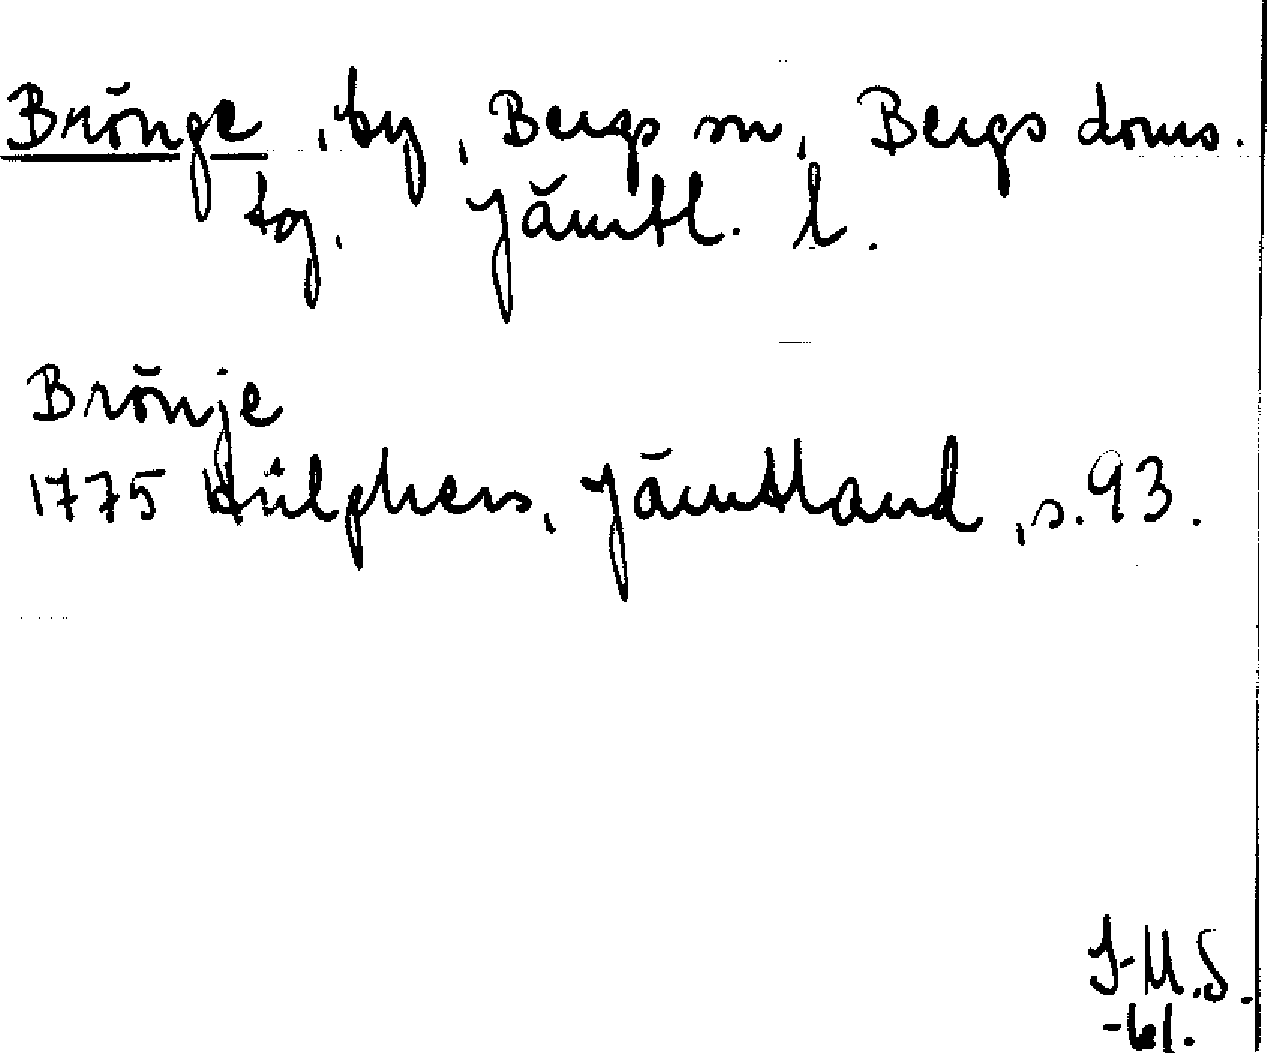 Brönge, by, Bergs sn, Bergs doms.
tg. Jämtl. l.
Brönje
1775 Hülphers, Jämtland, s. 93.
I-M.S.
-61.